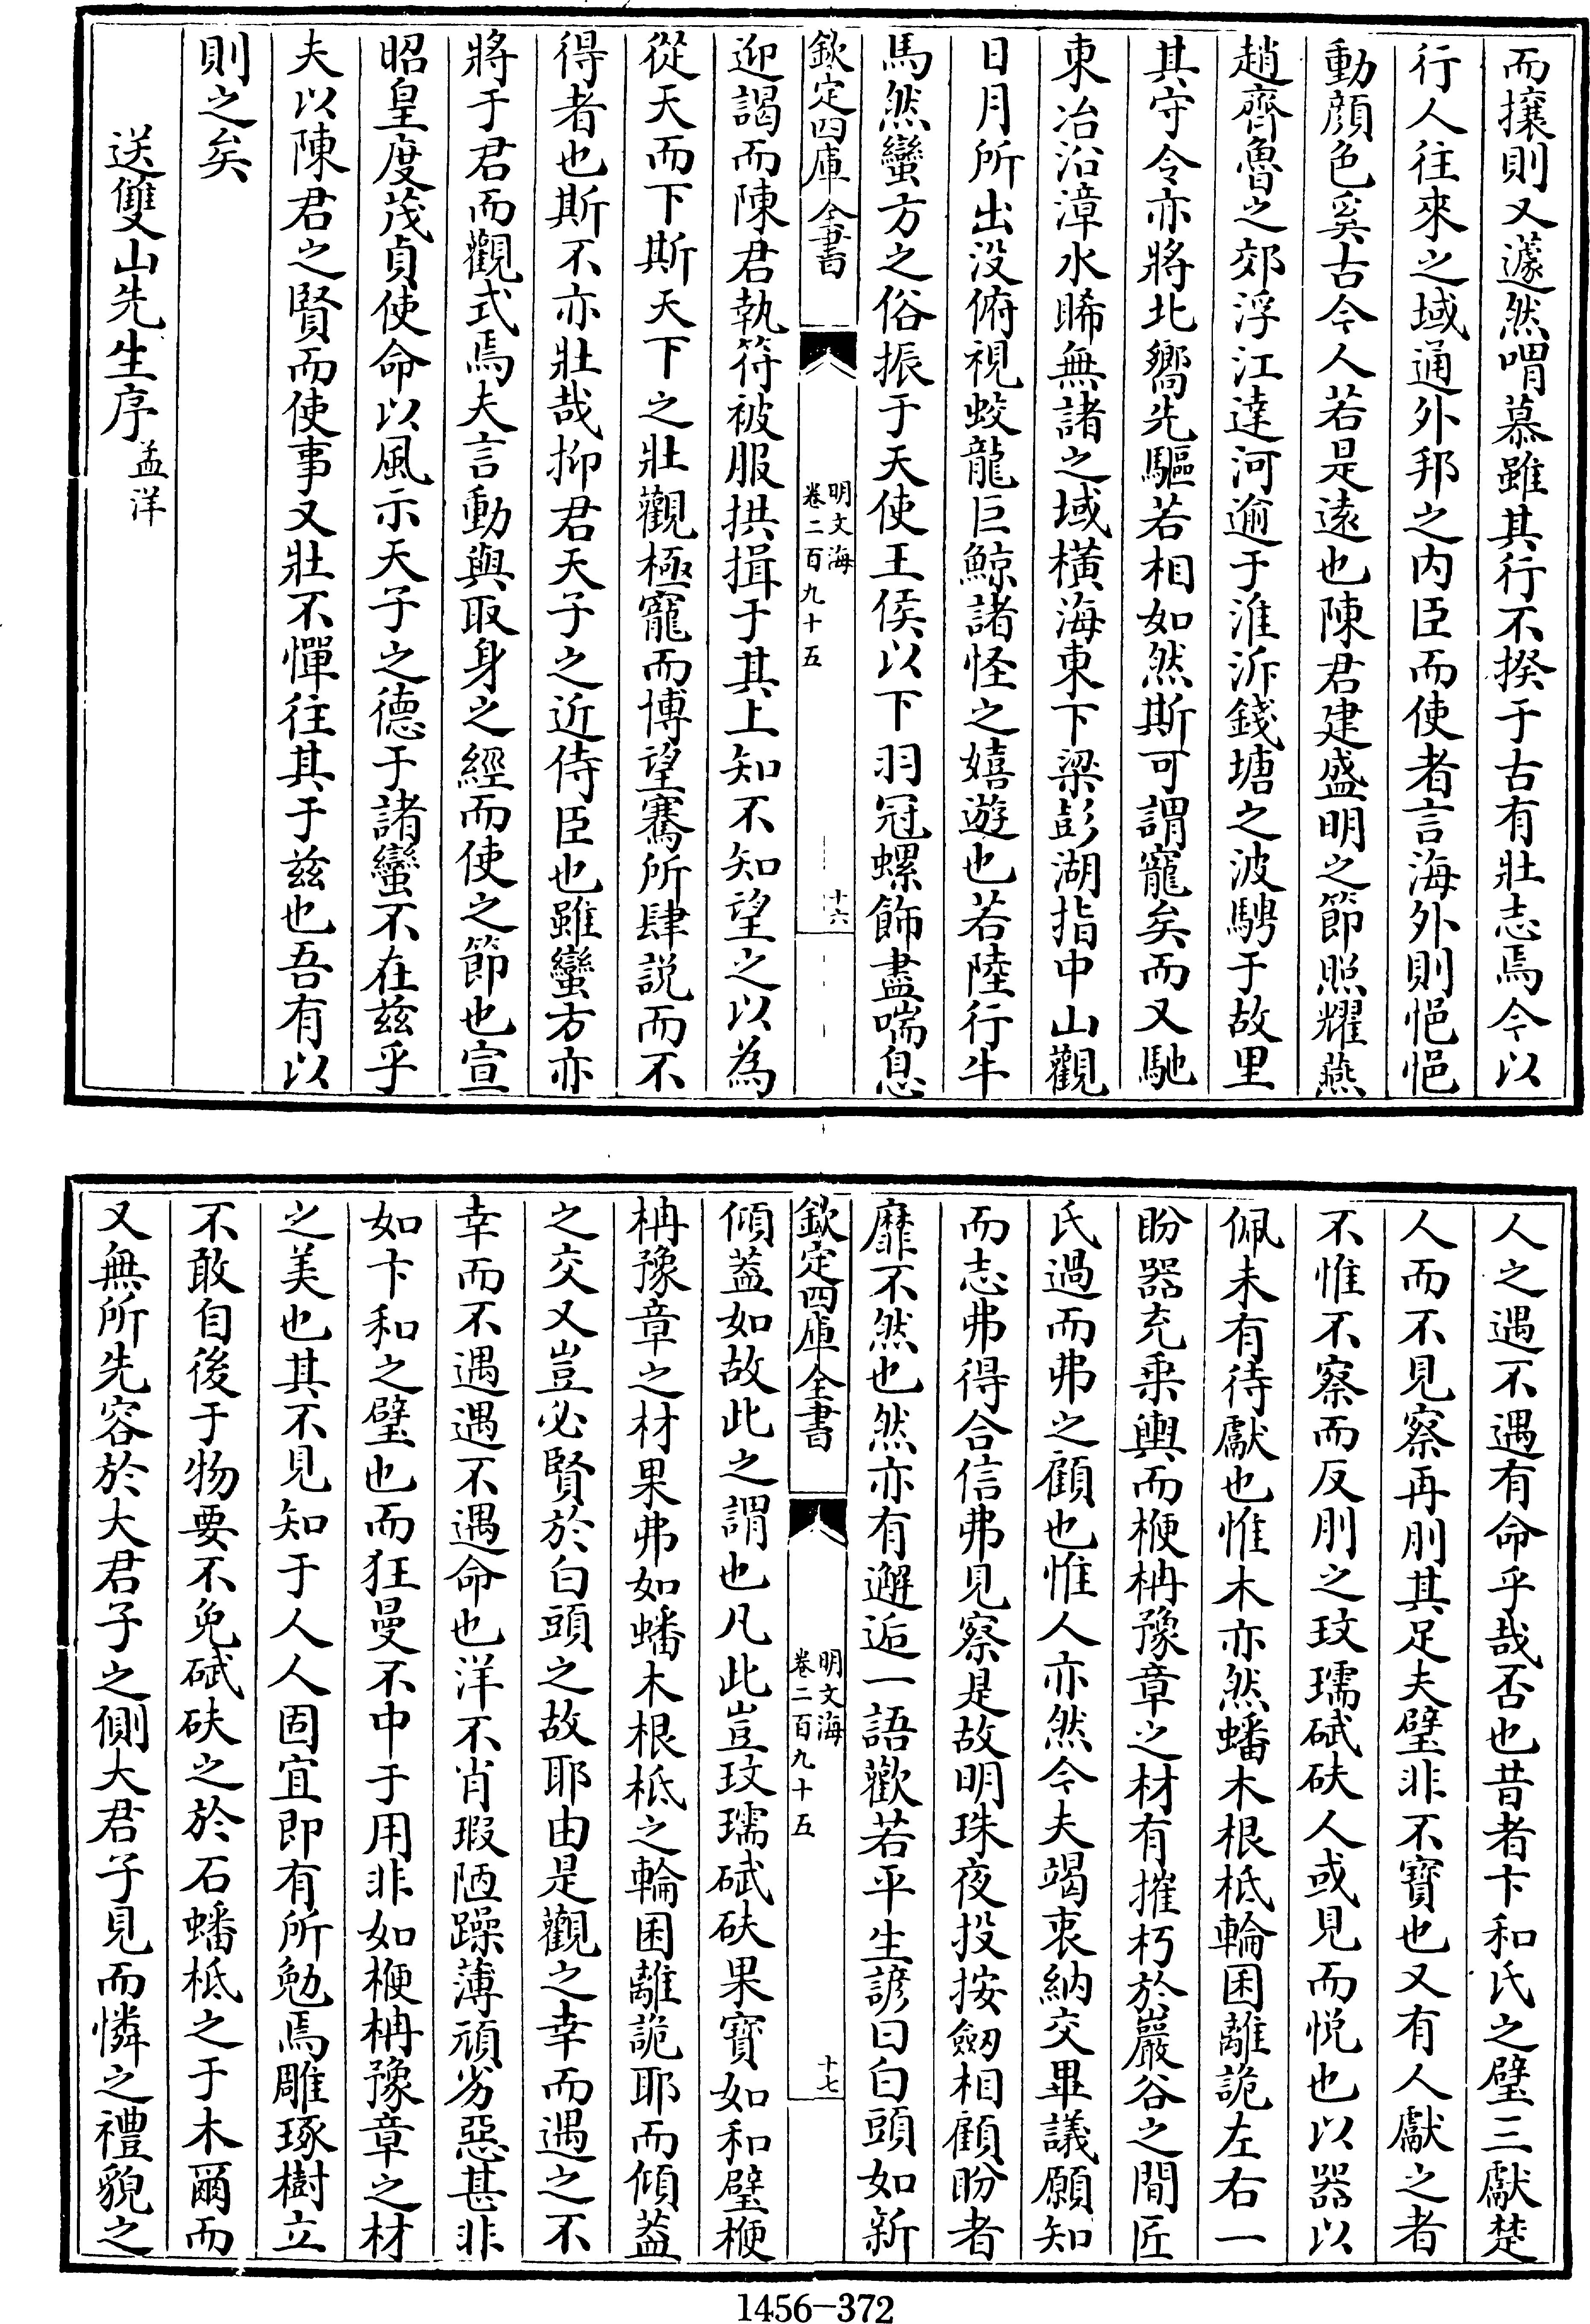 而攘則又蘧然喟慕雖其行不揆于古有壯志焉今以
行人往來之域通外邦之内臣而使者言海外則悒悒
動顔色奚古今人若是遠也陳君建盛明之節照耀燕
趙齊魯之郊浮江達河逾于淮泝錢塘之波騁于故里
其守令亦將北嚮先驅若相如然斯可謂寵矣而又馳
東冶沿漳水睎無諸之域橫海東下梁彭湖指中山觀
日月所出没俯視蛟龍巨鯨諸怪之嬉遊也若陸行牛
馬然蠻方之俗振于天使王侯以下羽冠螺飾盡喘息
欽定四庫全書
明文海
卷二百九十五
十六
迎謁而陳君執符被服拱揖于其上知不知望之以為
從天而下斯天下之壯觀極寵而博望騫所肆説而不
得者也斯不亦壯哉抑君天子之近侍臣也雖蠻方亦
將于君而觀式焉夫言動與取身之經而使之節也宣
昭皇度茂貞使命以風示天子之德于諸蠻不在兹乎
夫以陳君之賢而使事又壯不憚往其于兹也吾有以
則之矣
送雙山先生序 孟洋
人之遇不遇有命乎哉否也昔者卞和氏之璧三獻楚
人而不見察再刖其足夫璧非不寶也又有人獻之者
不惟不察而反刖之玟瓀碔砆人或見而悦也以器以
佩未有待獻也惟木亦然蟠木根柢輪囷離詭左右一
盼器充乘輿而楩柟豫章之材有摧朽於巖谷之間匠
氏過而弗之顧也惟人亦然今夫竭衷納交畢議願知
而志弗得合信弗見察是故明珠夜投按劒相顧盼者
靡不然也然亦有邂逅一語歡若平生諺曰白頭如新
欽定四庫全書
明文海
卷二百九十五
十七
傾蓋如故此之謂也凡此豈玟瓀碔砆果寶如和璧楩
柟豫章之材果弗如蟠木根柢之輪囷離詭耶而傾蓋
之交又豈必賢於白頭之故耶由是觀之幸而遇之不
幸而不遇遇不遇命也洋不肖瑕陋躁薄頑劣惡甚非
如卞和之璧也而狂曼不中于用非如楩柟豫章之材
之美也其不見知于人人固宜即有所勉焉雕琢樹立
不敢自後于物要不免碔砆之於石蟠柢之于木爾而
又無所先容於大君子之側大君子見而憐之禮貌之
1456-372